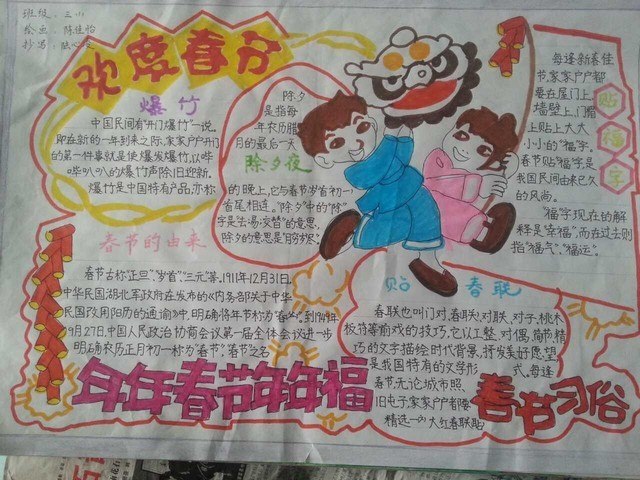 班级：三小
绘画：陈佳怡
抄写：陆心
欢度春节
爆竹
中国民间有"开门爆竹"一说。
即在新的一年到来之际，家家户户开门
的第一件事就是使爆发爆竹，以哔
哔叭叭的爆竹声除旧迎新。
爆竹是中国特有产品，亦称
除夕夜
除夕
是指每
年农历腊
月的最后一天
的晚上，它与春节岁首初一，
首尾相连。"除夕"中的"除"
字是"去·易·交替"的意思，
除夕的意思是"月穷岁尽"
贴福字
每逢新春佳
节，家家户户都
要在屋门上、
墙壁上、门楣
上贴上大大
小小的"福"字。
春节贴"福"字是
我国民间由来已久
的风尚。
"福"字现在的解
释是"幸福"，而在过去则
指"福气"、"福运"。
春节的由来
春节古称"正旦"、"岁首"、"三元"等。1911年12月31日，
中华民国湖北军政府在发布的《内务部关于中华
民国改用阳历的通谕》中，明确将年节称为"春节"，到1949年
9月27日，中国人民政治协商会议第一届全体会议进一步
明确农历正月初一称为"春节"，"春节"之名
年年春节年年福
贴春联
春联也叫门对、春贴、对联、对子、桃木
板符等，
的技巧，它以工整、对偶、简节、精
巧的文字描绘时代背景，抒发美好愿望，
是我国特有的文学形式，每逢
春节，无论城市照
旧屯子，家家户户都要
精选一幅大红春联贴
春节习俗